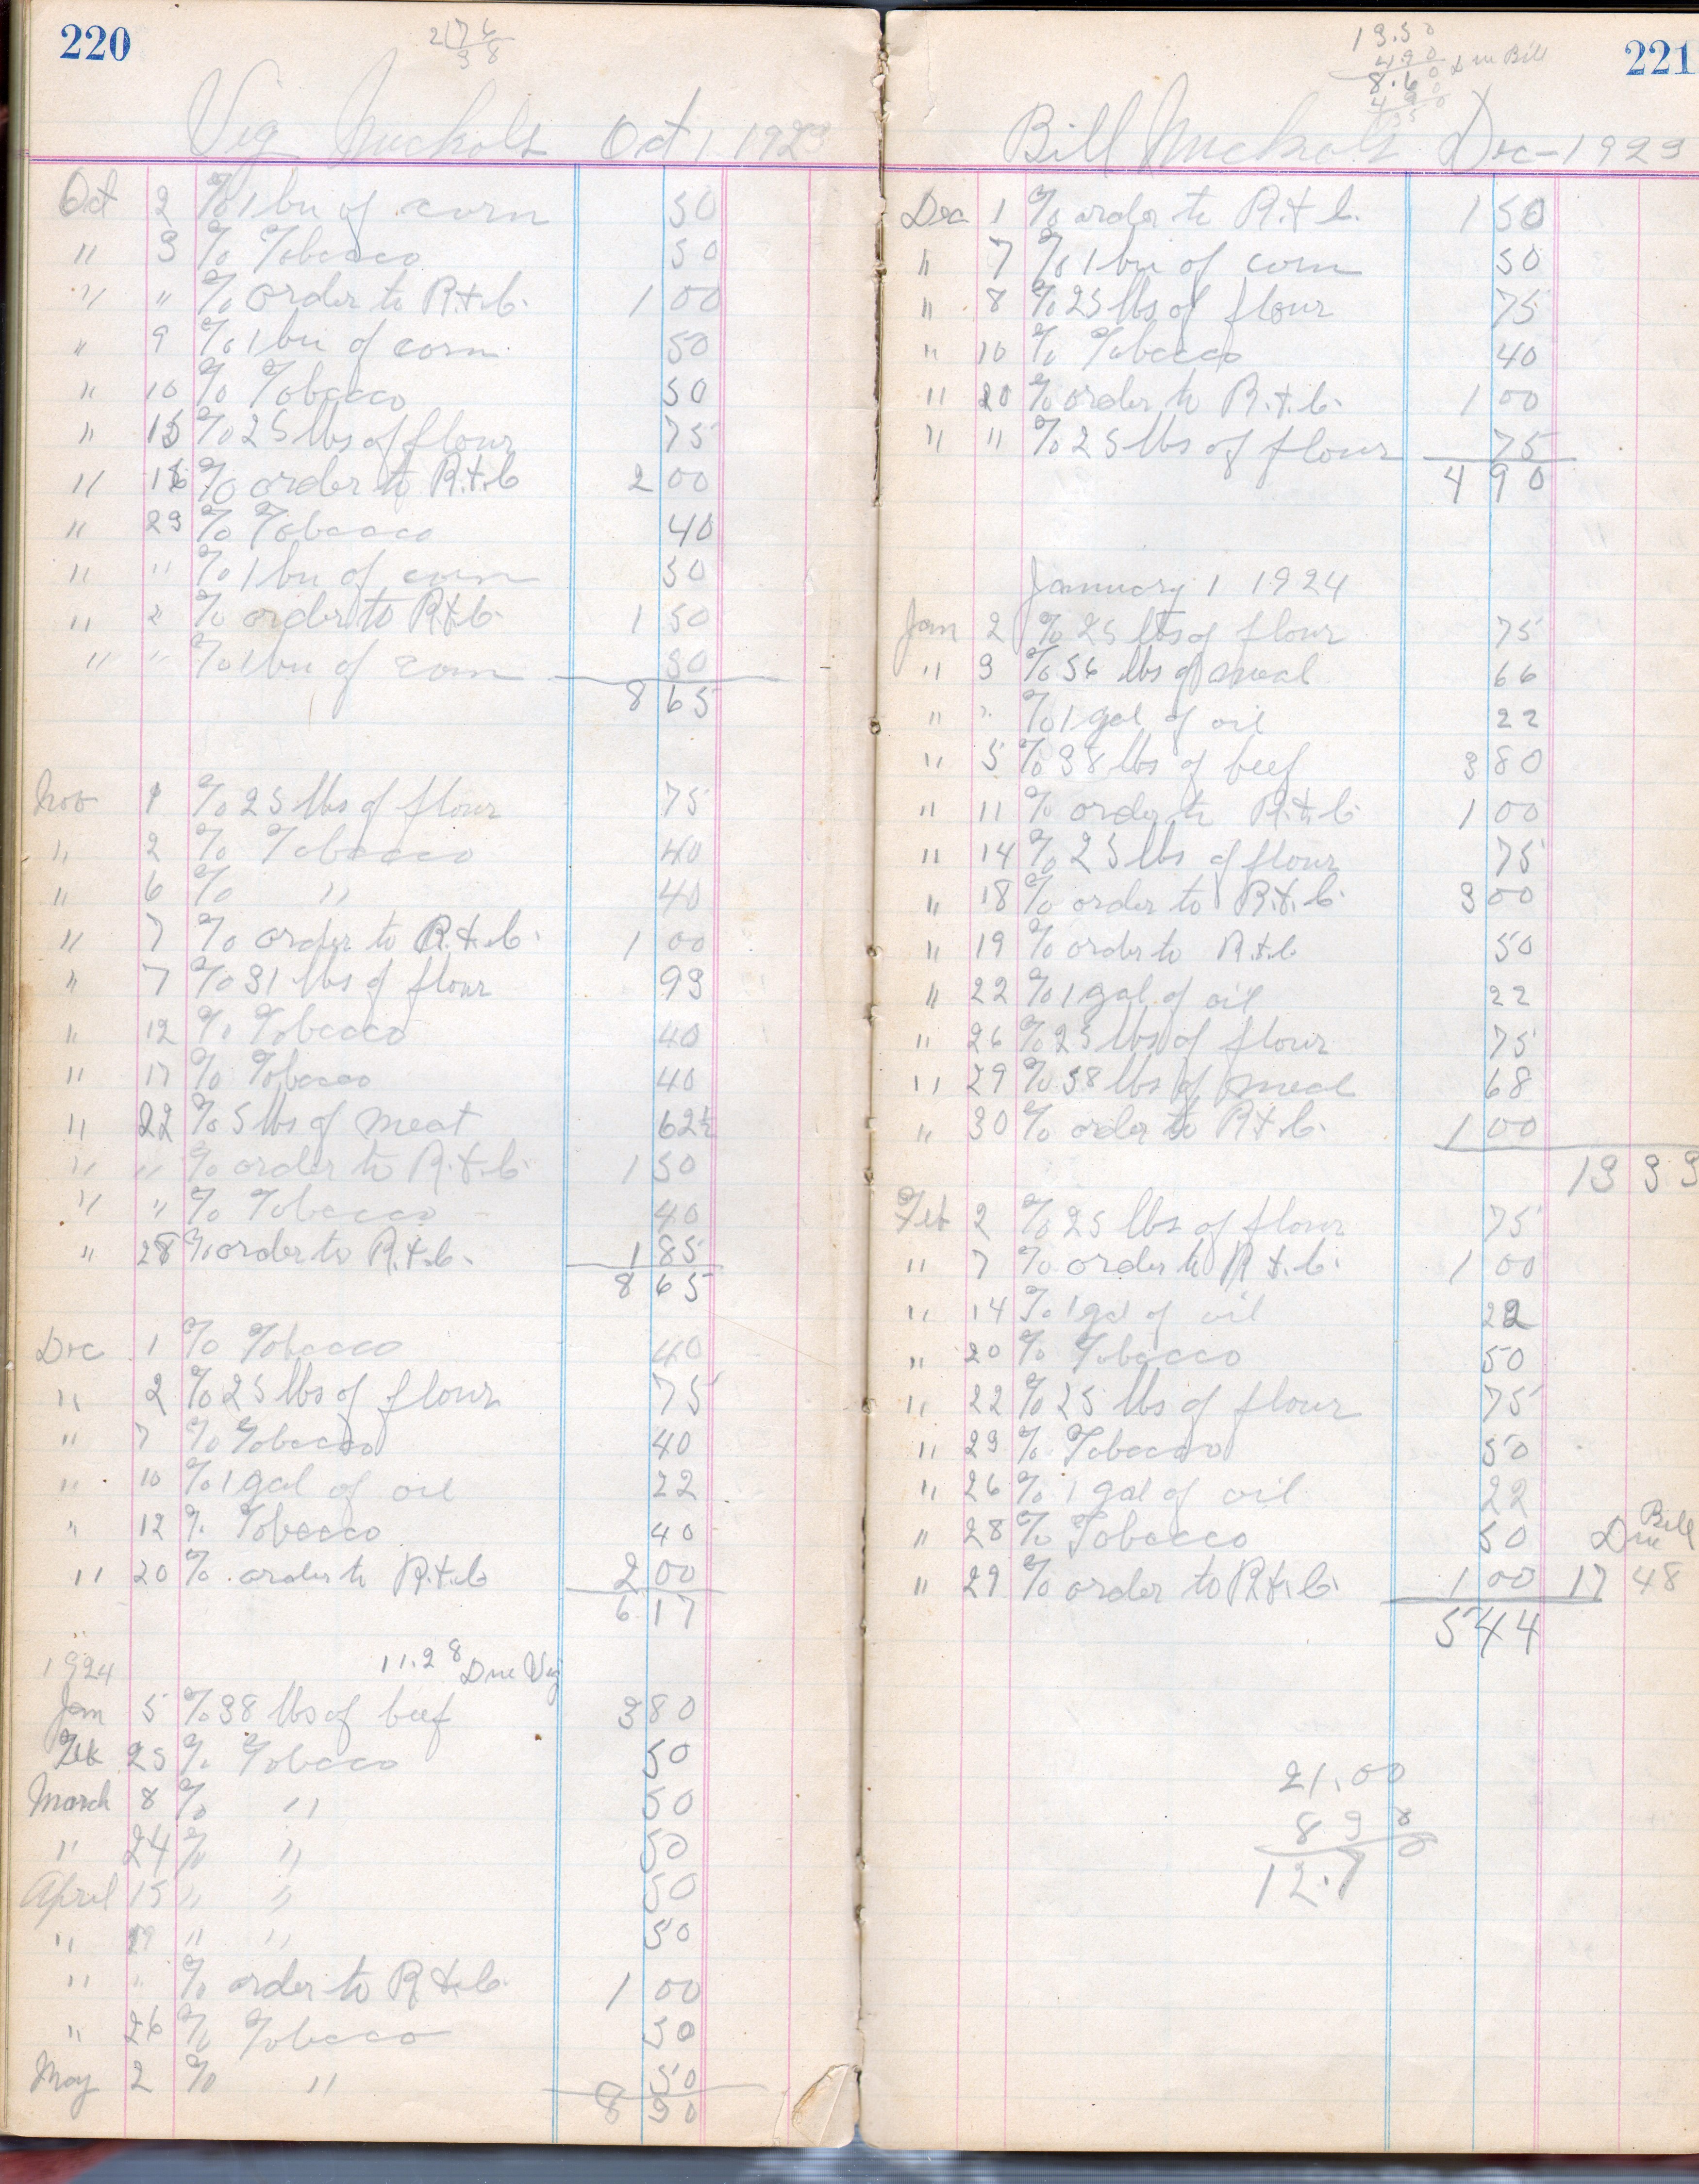 220
Vig Nichols Oct 1 1923
Oct 2 % 1 bu of corn 50
" 3 % Tobacco 50
" " % order to R.+C. 1 00
" 9 % 1 bu of corn 50
" 10 % Tobacco 50
" 15 % 25 lbs of flour 75
" 16 % order to R.+C 2 00
" 23 % Tobacco 40
" " % 1 bu of corn 50
" " % order to R+C. 1 50
" " % 1 bu of corn 50
8 65
Nov 1 % 25 lbs of flour 75
" 2 % Tobacco 40
" 6 % " 40
" 7 % order to R.+.C. 1 00
" 7 % 31 lbs of flour 93
" 12 % Tobacco 40
" 17 % Tobacco 40
" 22 % 5 lbs of meat 62½
" " % order to R.+.C. 1 50
" " % Tobacco 40
" 28 % order to R.+.C. 1 85
8 65
Dec 1 % Tobacco 40
" 2 % 25 lbs of flour 75
" 7 % Tobacco 40
" 10 % 1 gal of oil 22
" 12 % Tobacco 40
" 20 % order to R.+.C 2 00
6 17
1924 11.28 Due Vig
Jan 5 % 38 lbs of beef 3 80
Feb 25 % Tobacco 50
March 8 % " 50
" 24 % " 50
April 15 " " 50
" 19 " " 50
" " % order to R+C. 1 00
" 26 % Tobacco 50
May 2 % " 50
8 30
221
13.50
4.90
8.60 Due Bill
Bill Nichols Dec - 1923
Dec 1 % order to R.+C. 1 50
" 7 % 1 bu of corn 50
" 8 % 25 lbs of flour 75
" 10 % Tobacco 40
" 20 % order to R.+.C. 1 00
" " % 25 lbs of flour 75
4 90
January 1 1924
Jan 2 % 25 lbs of flour 75
" 3 % 56 lbs of meal 66
" " % 1 gal of oil 22
" 5 % 38 lbs of beef 3 80
" 11 % order to R.+.C. 1 00
" 14 % 25 lbs of flour 75
" 18 % order to R.+.C. 3 00
" 19 % order to R.+.C 50
" 22 % 1 gal of oil 22
" 26 % 25 lbs of flour 75
" 29 % 58 lbs of meal 68
" 30 % order to R.+.C. 1 00
13 33
Feb 2 % 25 lbs of flour 75
" 7 % order to R.+.C. 1 00
" 14 % 1 gal of oil 22
" 20 % Tobacco 50
" 22 % 25 lbs of flour 75
" 23 % Tobacco 50
" 26 % 1 gal of oil 22
" 28 % Tobacco 50 Due Bill
" 29 % order to R.+.C. 1 00 17 48
5 44
21.00
8 3
12.7